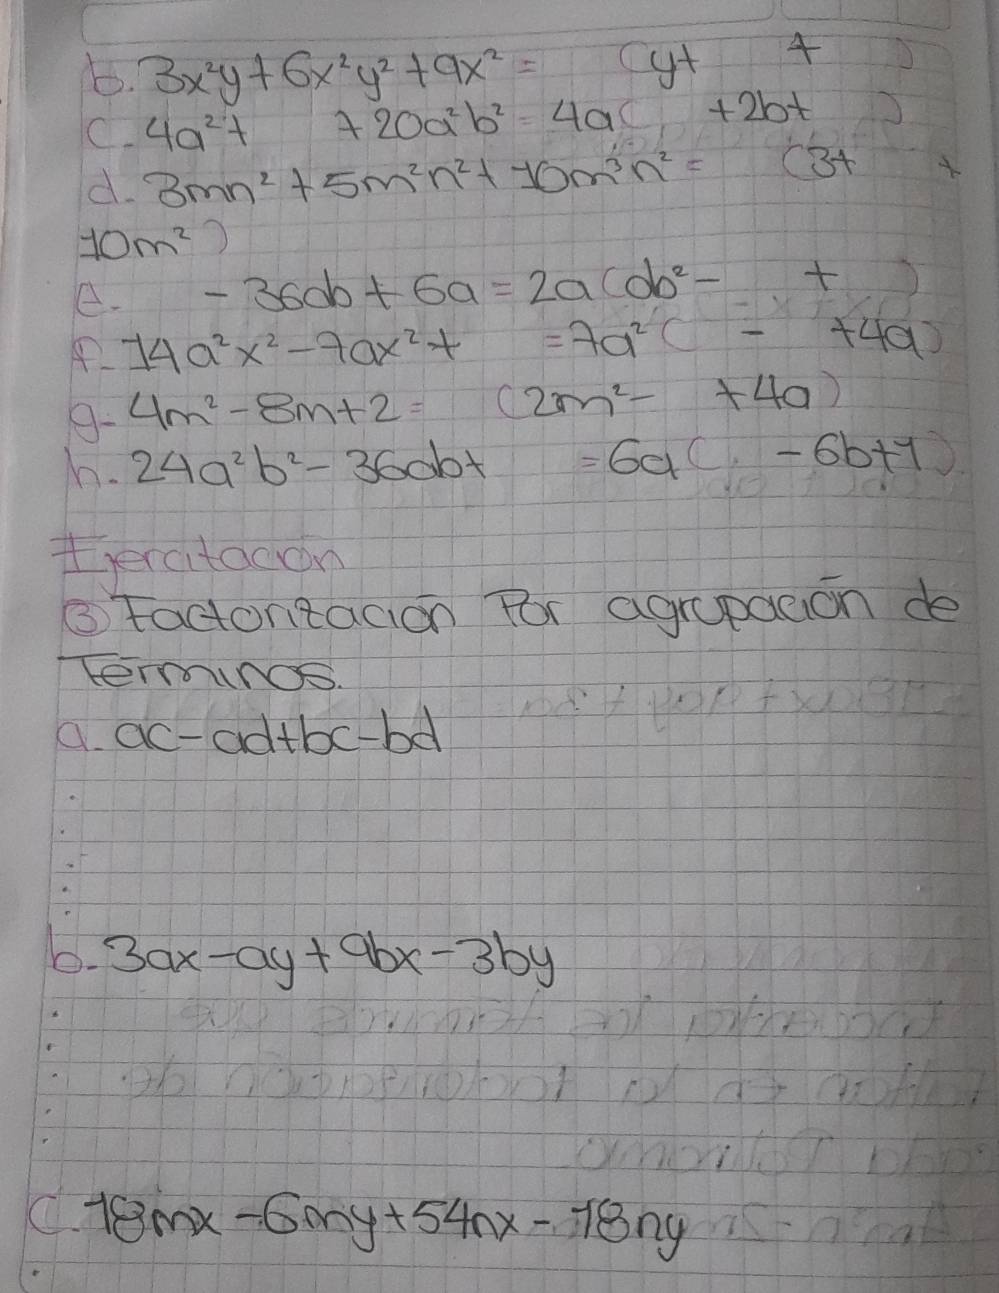 b. 3x²y + 6x²y² + 9x² = (y+ + )
c. 4a² + + 20a²b² = 4a( +2b+ )
d. 3mn² + 5m²n² + 10m³n² = (3+ +
10m²)
e. - 36ab + 6a = 2a(ab² - + )
f. 14a²x² - 7ax² + = 7a²( - +4a)
g. 4m² - 8m + 2 = (2m² - +4a)
h. 24a²b² - 36ab + = 6a( - 6b+1)
Ejercitación
③ Factorización Por agrupación de
Términos.
a. ac - ad + bc - bd
b. 3ax - ay + 9bx - 3by
c. 18mx - 6my + 54nx - 18ny